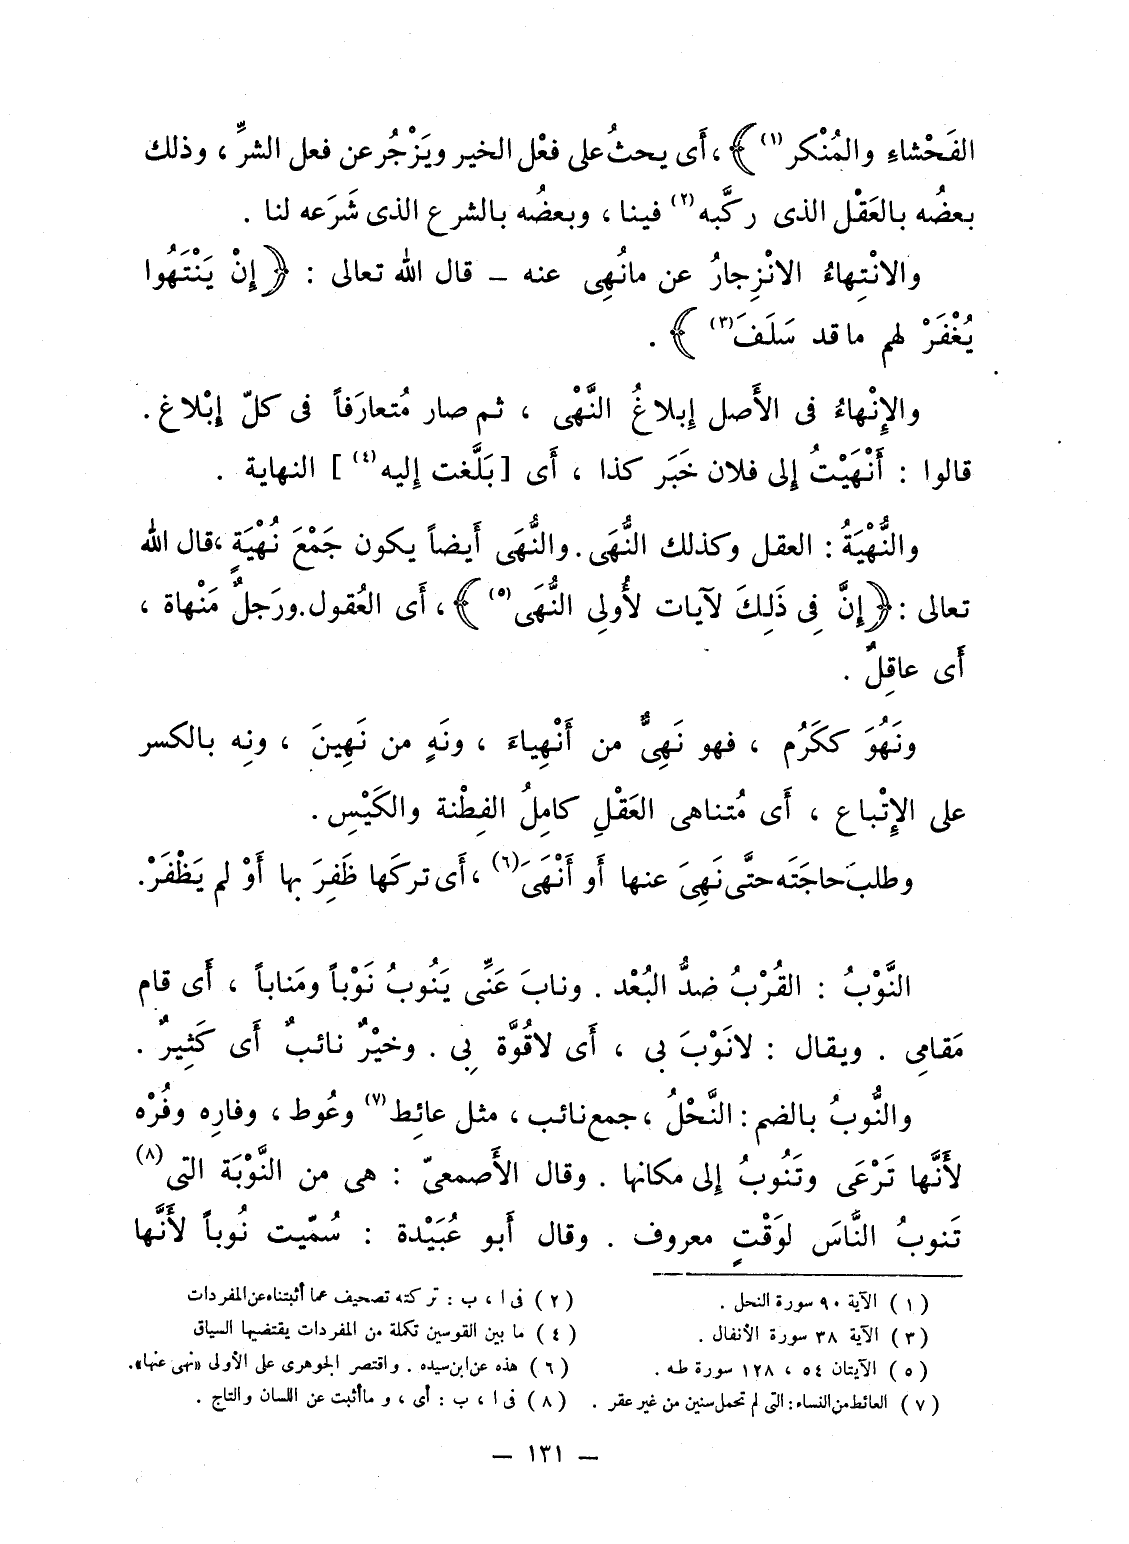 الفَحْشاءِ والمُنْكر(١)﴾ ، أَى يحثُ على فعْل الخير ويَزْجُر عن فعل الشرِّ ، وذلك
بعضُه بالعَقْل الذى ركَّبه(٢) فينا ، وبعضُه بالشرع الذى شَرَعه لنا .
والانْتِهاءُ الانْزِجارُ عن مانُهِى عنه – قال الله تعالى : ﴿إِنْ يَنْتَهُوا
يُغْفَرْ لهم ماقد سَلَفَ(٣)﴾ .
والإِنْهاءُ فى الأَصل إبلاغُ النَّهْى ، ثم صار مُتعارَفاً فى كلّ إِبْلاغ .
قالوا : أَنْهَيْتُ إِلى فلان خَبَر كذا ، أَى [بَلَّغت إِليه(٤)] النهاية .
والنُّهْيَةُ : العقل وكذلك النُّهَى . والنُّهَى أَيضاً يكون جَمْعَ نُهْيَةٍ ،قال الله
تعالى :﴿إِنَّ فِى ذَلِكَ لآيات لأُولِى النُّهَى(٥)﴾ ، أَى العُقول .ورَجلٌ مَنْهاة ،
أَى عاقِلٌ .
ونَهُوَ ككَرُم ، فهو نَهِىٌّ من أَنْهِياءَ ، ونَهٍ من نَهِينَ ، ونِه بالكسر
على الإِتْباع ، أَى مُتناهى العَقْلِ كامِلُ الفِطْنة والكَيْسِ .
وطلبَ حاجَتَه حتَّى نَهِىَ عنها أَو أَنْهَىَ(٦) ،أَى تركَها ظَفِرَ بها أَوْ لم يَظْفَرْ.
النَّوْبُ : القُرْبُ ضدُّ البُعْد . ونابَ عَنِّى يَنُوبُ نَوْباً ومَناباً ، أَى قام
مَقامِى . ويقال : لانَوْبَ بى ، أَى لاقُوَّة بِى . وخيْرٌ نائبٌ أَى كَثِيرٌ .
والنُّوبُ بالضم : النَّحْلُ ،جمع نائب ، مثل عائِط(٧) وعُوط ، وفارِه وفُرْه
لأَنَّها تَرْعَى وتَنُوبُ إلى مكانها . وقال الأَصمعىّ : هى من النَّوْبَة التى(٨)
تَنوبُ النَّاسَ لوَقْتٍ معروف . وقال أَبو عُبَيْدة : سُمّيت نُوباً لأَنَّها
(١) الآية ٩٠ سورة النحل . (٢) فى ا ، ب : تركته تصحيف عما أثبتناه عن المفردات
(٣) الآية ٣٨ سورة الأنفال . (٤) ما بين القوسين تكملة من المفردات يقتضيها السياق
(٥) الآيتان ٥٤ ، ١٢٨ سورة طه . (٦) هذه عن ابن سيده . واقتصر الجوهرى على الأولى «نهى عنها».
(٧) العائط من النساء : التى لم تحمل سنين من غير عقر . (٨) فى ا ، ب : أى ، وما أثبت عن اللسان والتاج .
– ١٣١ –